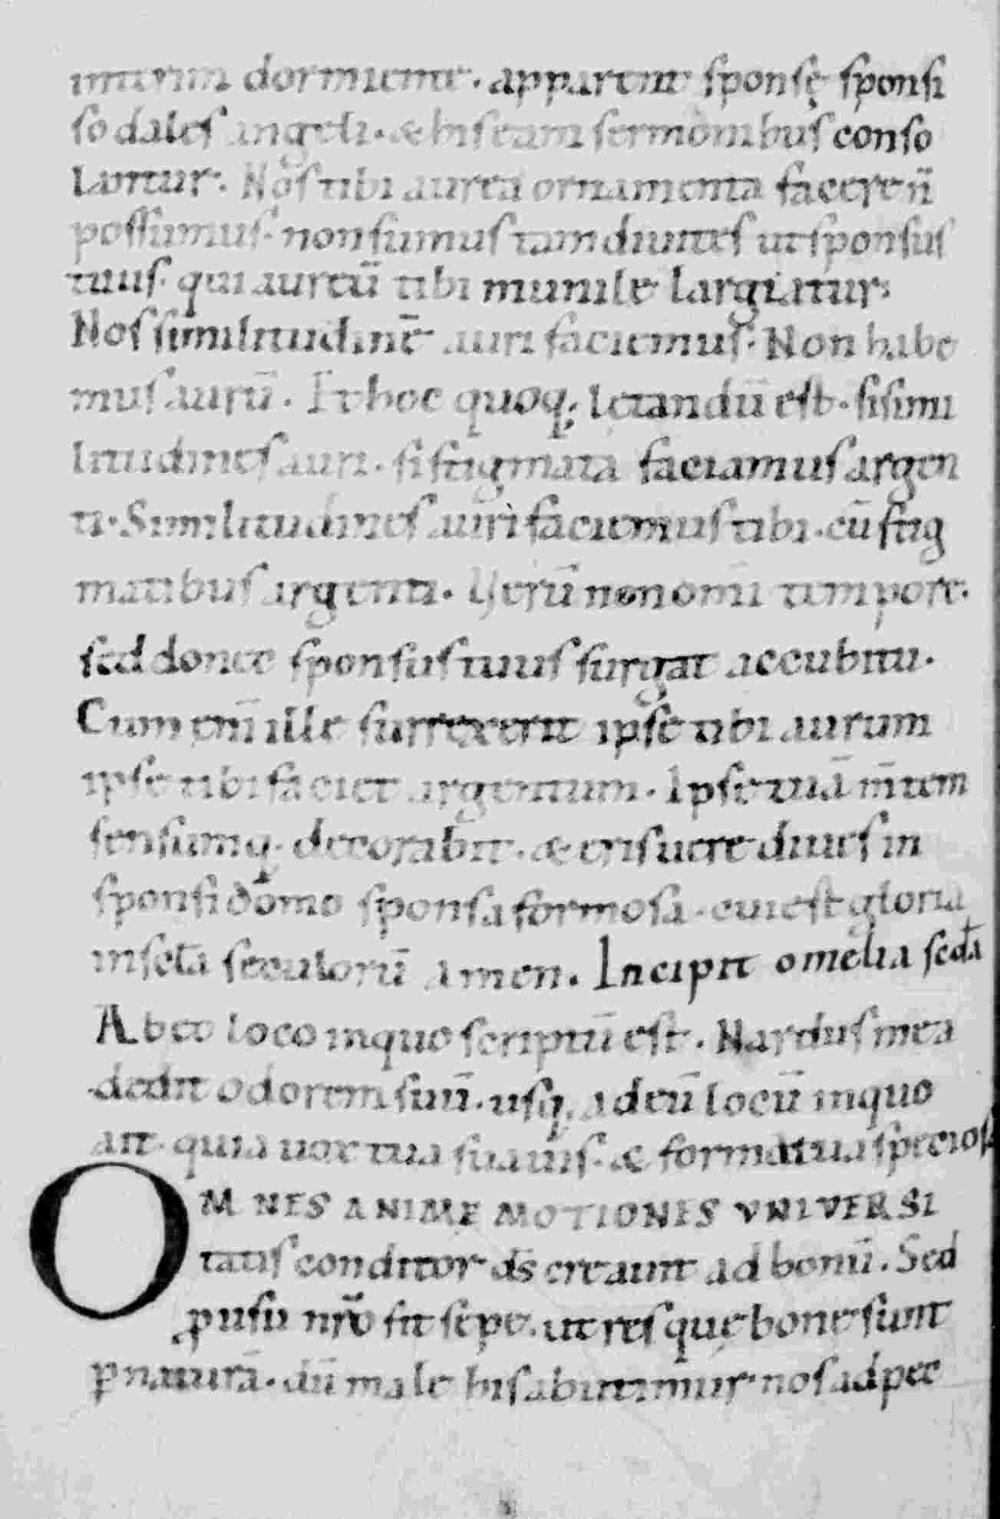 interim dormiente. apparent sponsę sponsi
sodales angeli. & his eam sermonibus conso
lantur. Nos tibi aurea ornamenta facere ñ
possumus. non sumus tam diuites ut sponsus
tuus. qui aureũ tibi munile largiatur.
Nos similitudinẽ auri faciemus. Non habe
mus aurũ. Et hoc quoq; lętandũ est. si simi
litudines auri. si stigmata faciamus argen
ti. Similitudines auri faciemus tibi. cũ stig
matibus argenti. Verũ non om̃i tempore.
sed donec sponsus tuus surgat accubitu.
Cum eni᷈ ille surrexerit ipse tibi aurum
ipse tibi faciet argentum. Ipse tuã m̃tem
sensumq. decorabit. & eris uere diues in
sponsi domo sponsa formosa. cui est gloria
in scła seculorũ amen. Incipit omelia scďa
Ab eo loco in quo scriptũ est. Nardus mea
dedit odorem suũ. usq, ad eũ locũ in quo
ait. quia uox tua suauis. & forma tua speciosa
OMNES ANIMĘ MOTIONES VNIVERSI
tatis conditor d̃s creauit ad bonũ. Sed
ꝓ usu nr̃o fit sępe. ut res quę bonę sunt
ꝑ naturã. dũ male his abutimur. nos ad pec